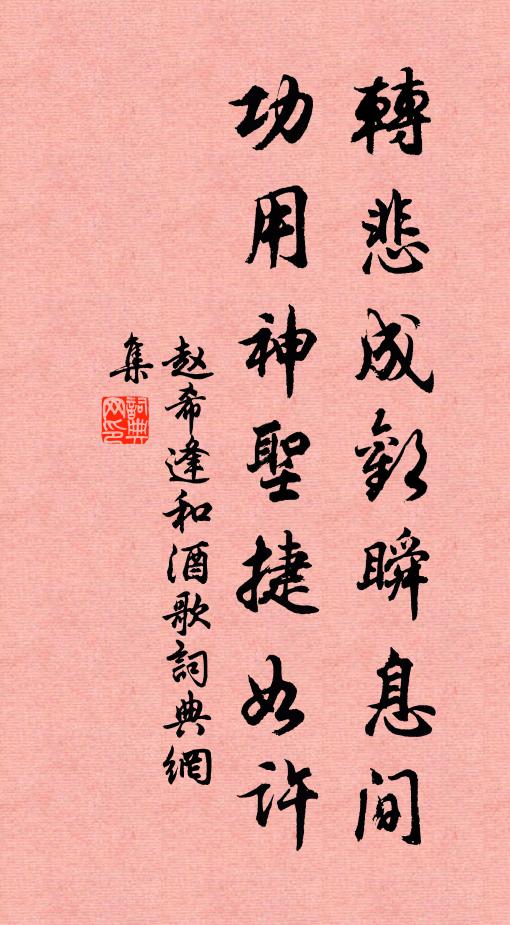 轉悲成歡瞬息间
功用神聖捷如许
赵希逢和酒歌詞典網
集
詞典
网印